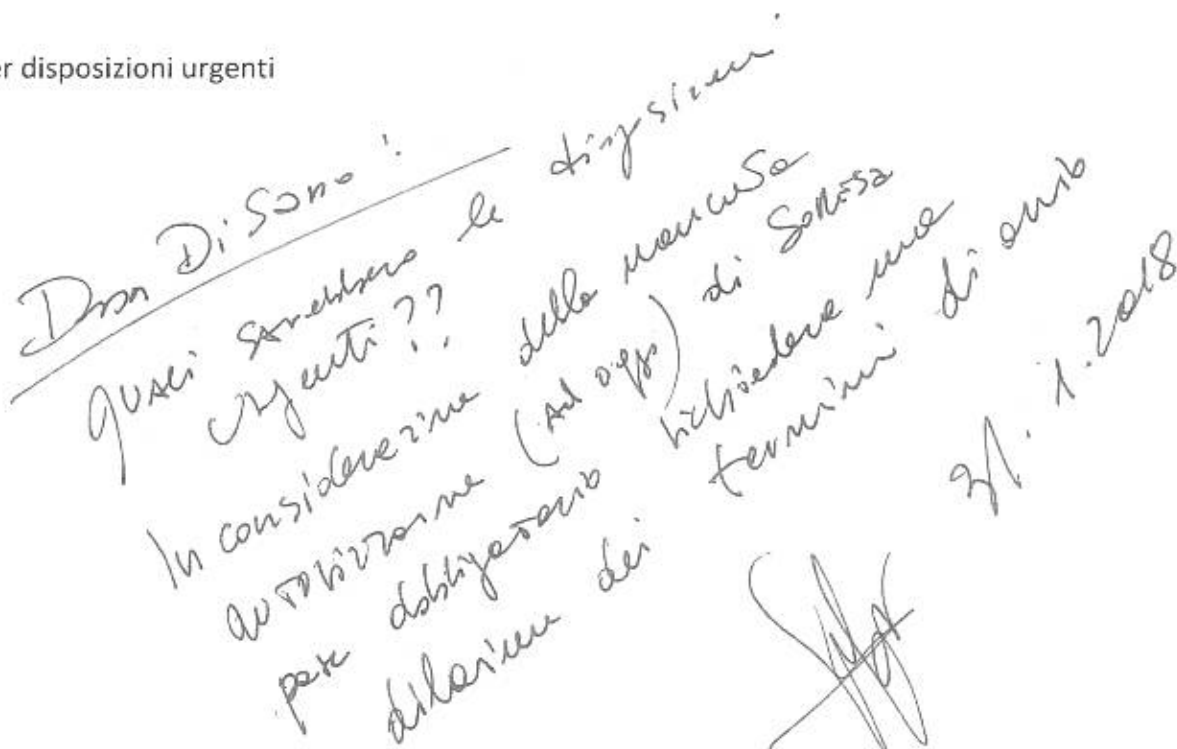 er disposizioni urgenti
D.ssa Di Sano!
Quali sarebbero le disposizioni
urgenti??
In considerazione della mancata
autorizzazione (ad oggi) di SORESA
pare obbligatorio richiedere una
dilazione dei termini di avvio
31.1.2018